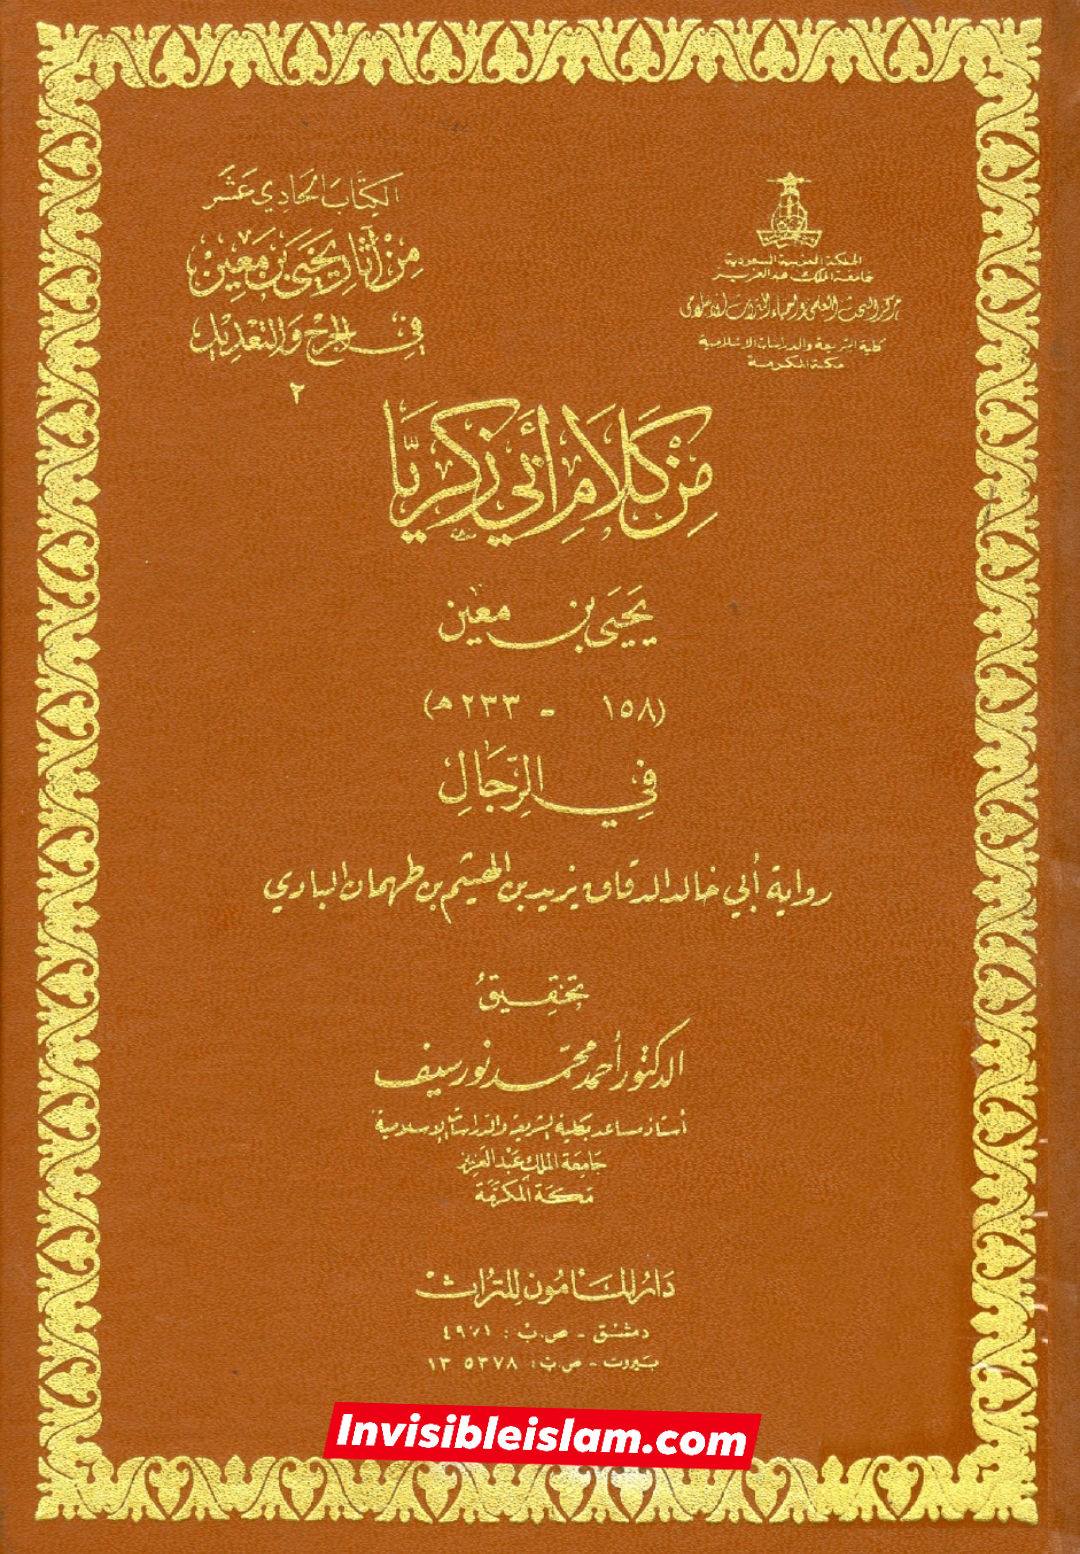 المملكة العربية السعودية
جامعة الملك عبد العزيز
مركز البحث العلمي وإحياء التراث الإسلامي
كلية الشريعة والدراسات الإسلامية
مكة المكرمة
الكتاب الحادي عشر
من آثار يحيى بن معين
في الجرح والتعديل
٢
من كلام أبي زكريا
يحيى بن معين
(١٥٨ - ٢٣٣ھ)
في الرجال
رواية أبي خالد الدقاق يزيد بن الهيثم بن طهمان البادي
تحقيق
الدكتور أحمد محمد نور سيف
أستاذ مساعد بكلية الشريعة والدراسات الإسلامية
جامعة الملك عبد العزيز
مكة المكرمة
دار المأمون للتراث
دمشق - ص.ب: ٤٩٧١
بيروت - ص.ب: ٥٣٧٨ ١٣
Invisibleislam.com